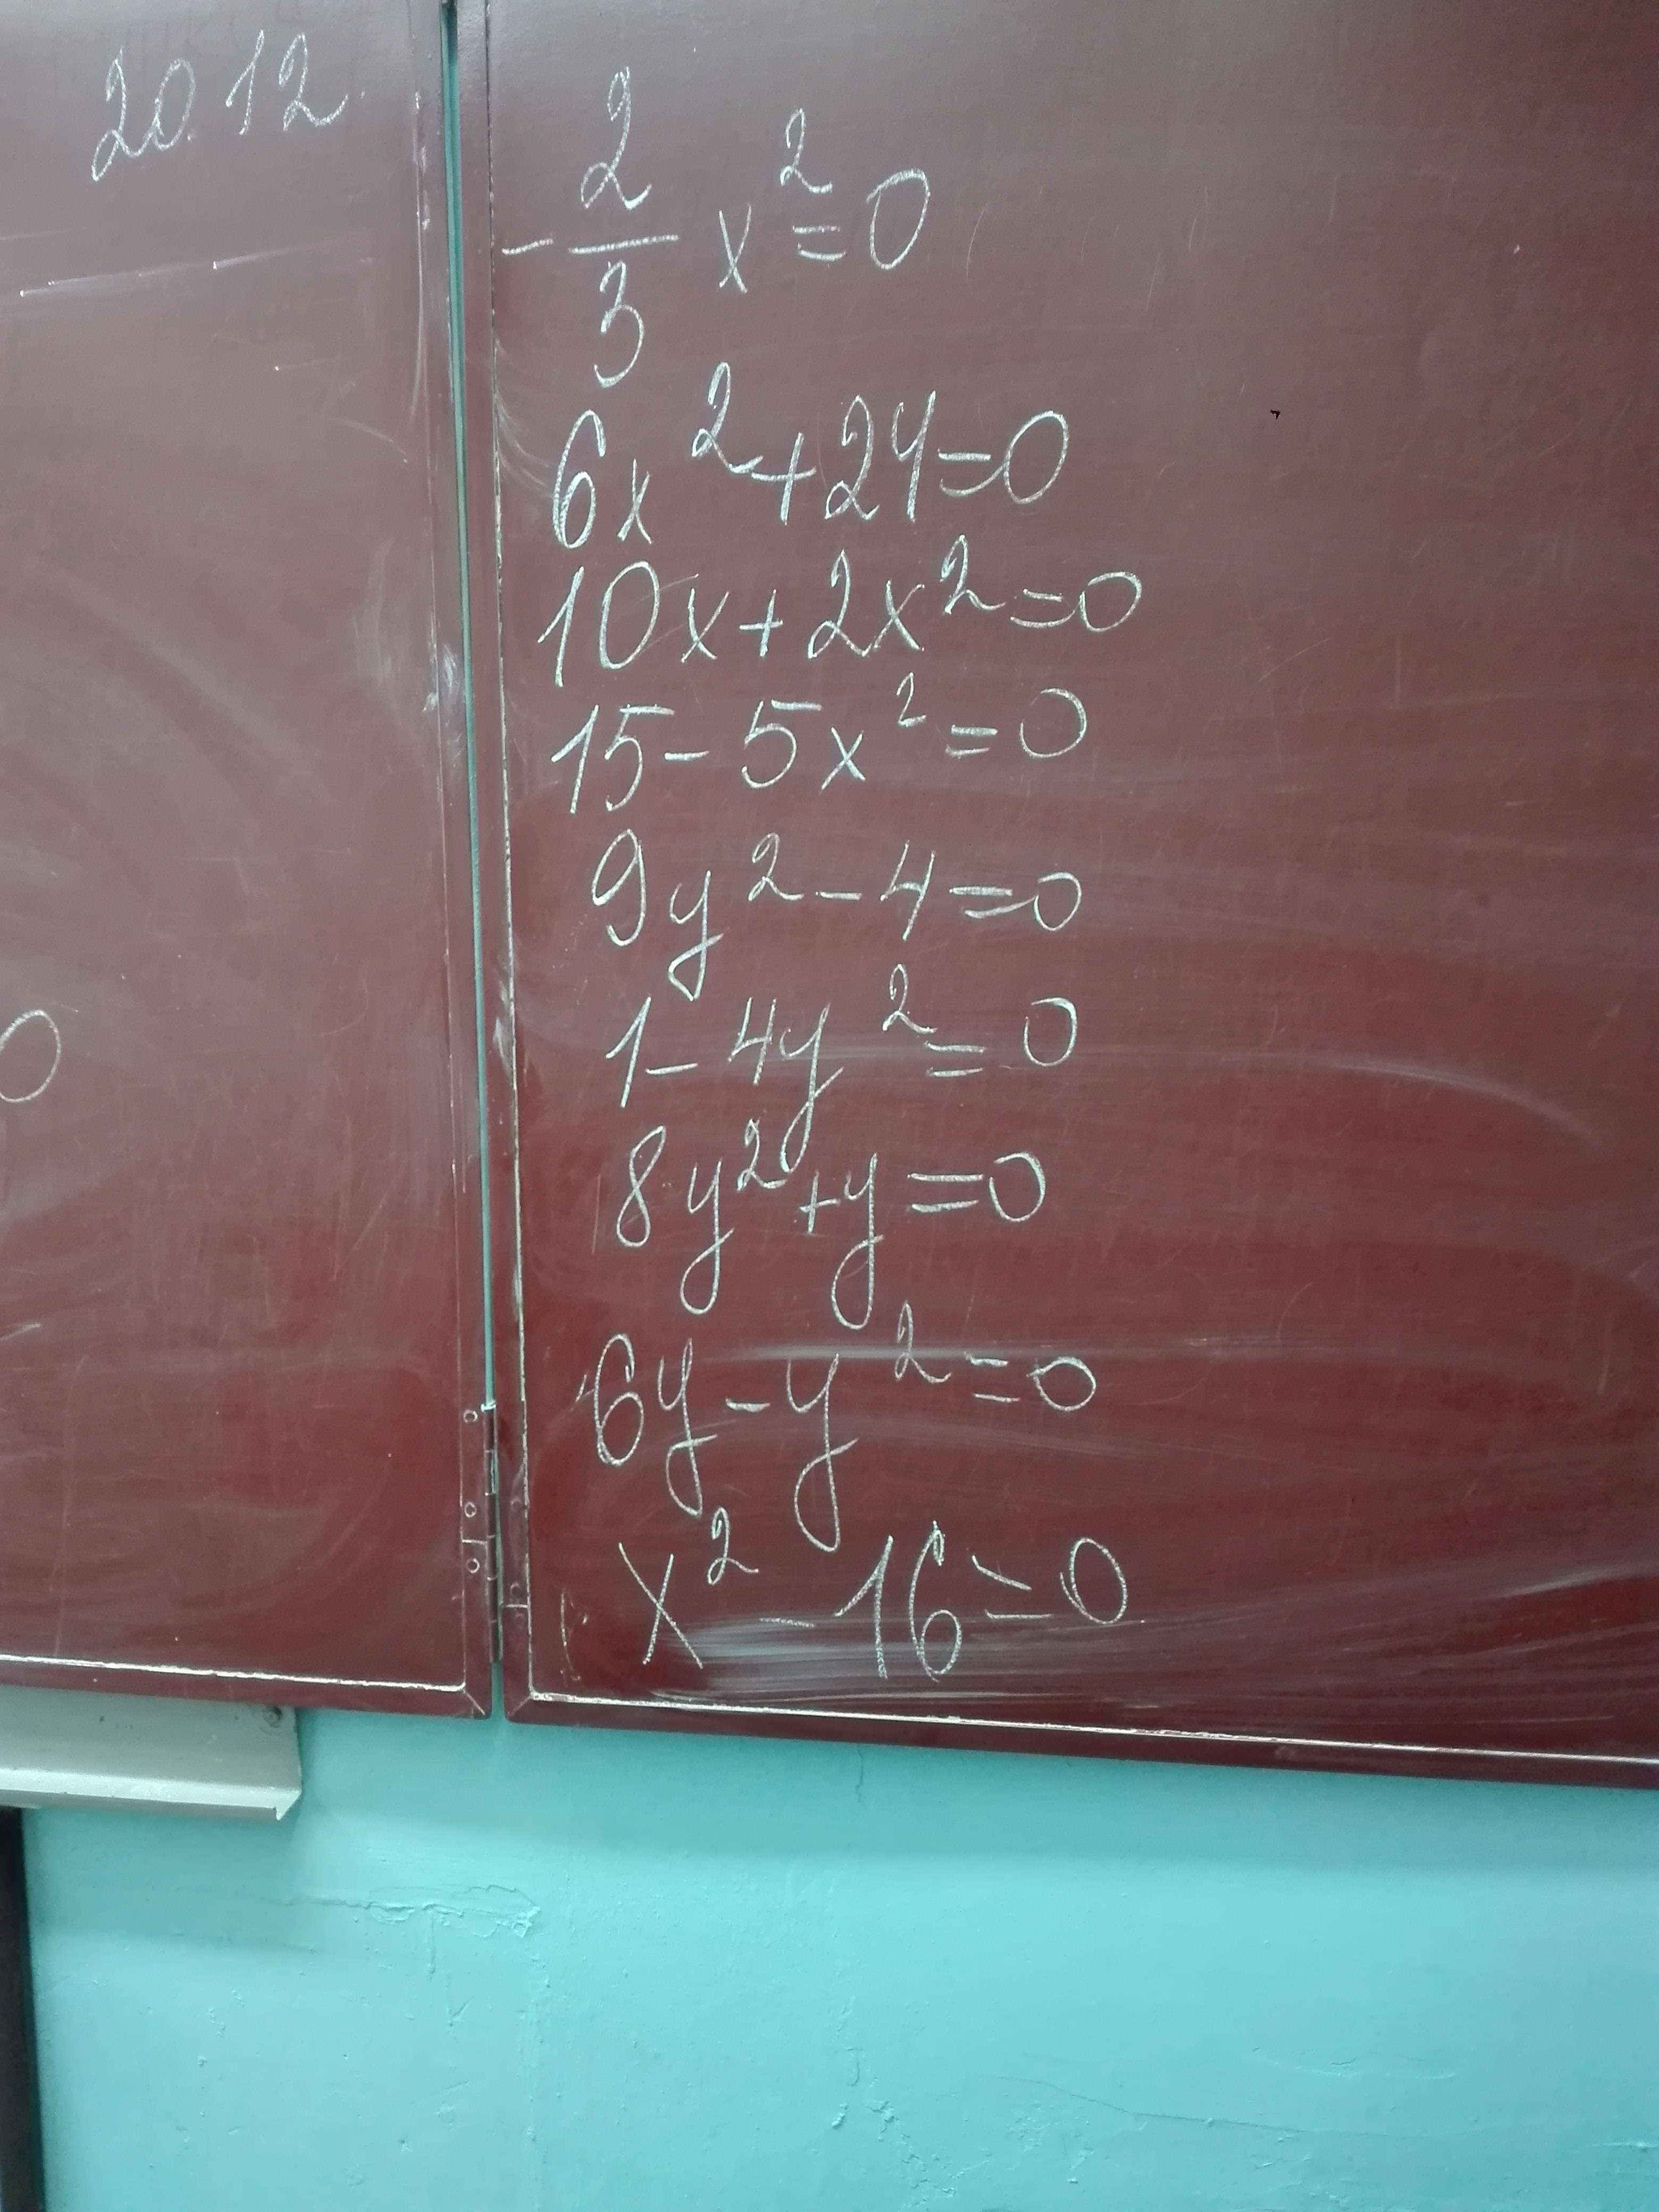 20.12.
-2/3 x²=0
6x²+24=0
10x+2x²=0
15-5x²=0
9y²-4=0
1-4y²=0
8y²+y=0
6y-y²=0
x²-16=0
0